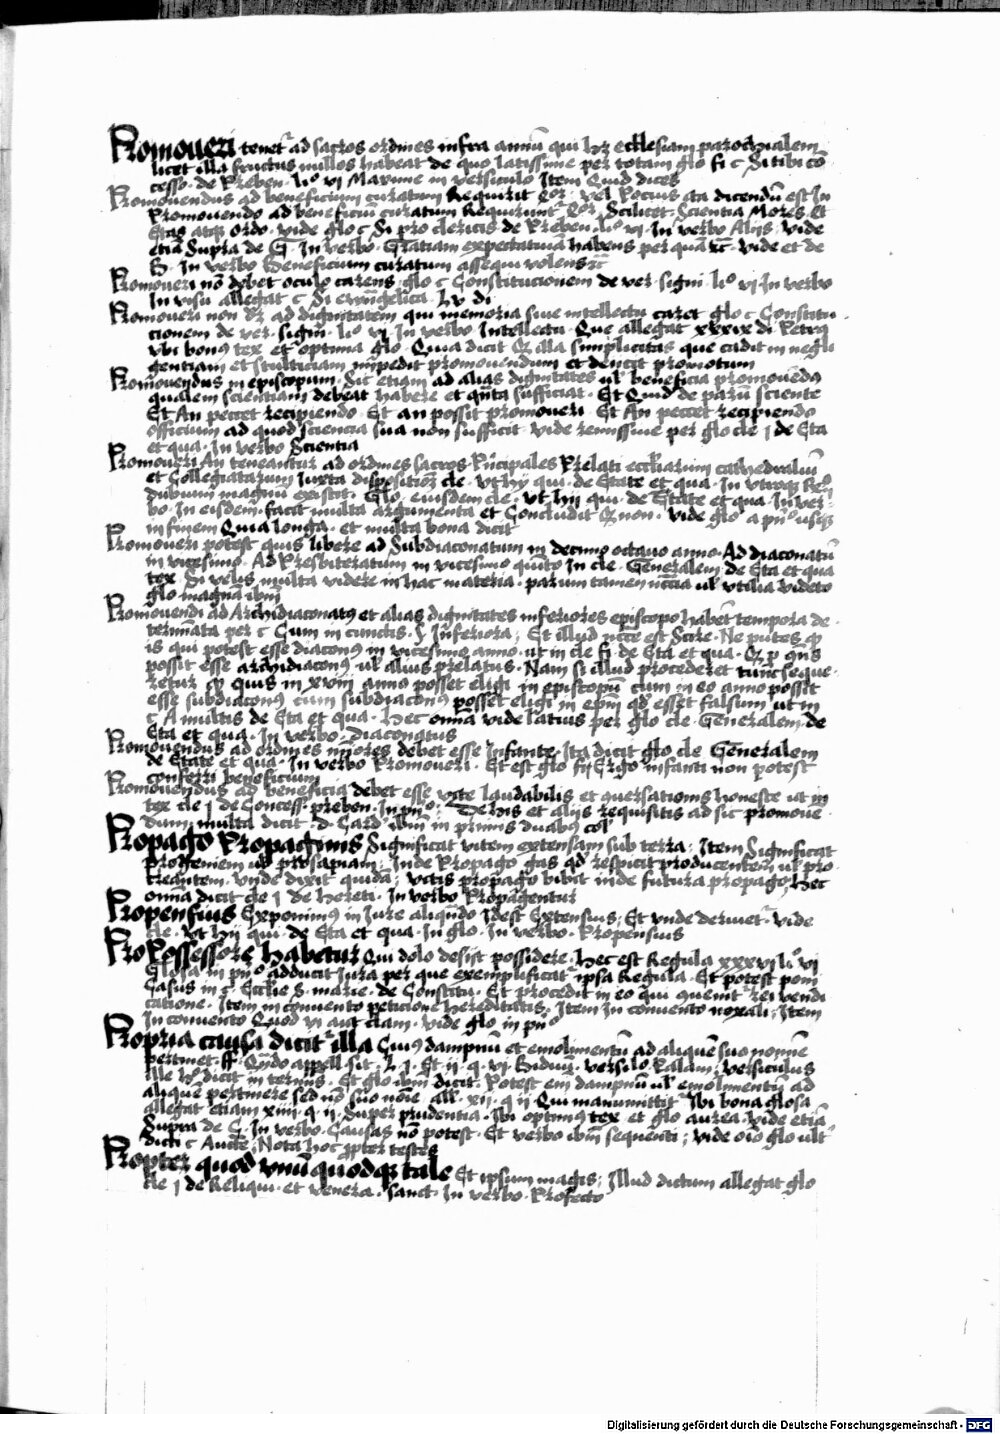 Promoueri tenet᷑ ad sacros ordines infra annū qui hʒ ecclesiam parochialem
licet illa fructus nullos habeat de quo latissime per totam glo fi c Si tibi cō
cesso · de Preben · li° vi Maxime in versiculo Item Quid dices
Promouendus ad beneficium curatum Requirit vel Pocius ita dicendū est In
Promouendo ad beneficiū curatum Requirunt᷑ Scilicet · Scientia Mores Et
Etas atqꝫ ordo · vide glo c Si pro clericis de Preben · li° vi · In verbo Alijs · vide
etiā Supra de G · In verbo · Gratiam expectatiuā habens per quā ꝛc̄ · vide et de
B · In verbo Beneficium curatum assequi volens ꝛc̄
Promoueri nō debet oculo carens · glo c Constitucionem de ver · signi · li° vi · In verbo
In visu allegat c Si euangelica · Lv di
Promoueri non dʒ ad dignitatem qui memoria siue intellectu caret glo c Constitu ·
cionem de ver · signi · li° vi In verbo Intellectu · Que allegat xxxix di Petrꝰ
vbi bonꝰ tex et optima glo · Quia dicit ꝙ illa simplicitas que cadit in negli
gentiam et stulticiam impedit promouendum et deicit promotum
Promouendus in episcopum · Sit etiam ad alias dignitates ul᷑ beneficia promouēdꝰ
qualem scientiam debeat habere et quāta sufficiat · Et Quid de parū sciente
Et An peccet recipiendo · Et an possit promoueri · Et An peccet recipiendo
officium ad quod sciencia sua non sufficit · vide remissiue per glo cle j de Eta
et qua · In verbo Scientia
Promoueri An teneantur ad ordines sacros Principales Prelati eccl̄iarum cathedraliū
et Collegiatarum Iuxta dispositioē cle · vt hij qui · de Etate et qua · In vtroqꝫ
dubium magnū existit · Glo · eiusdem cle · vt hij qui · de Etate et qua · In ver ·
bo · In eisdem · facit multa argumenta et Concludit ꝙ non · vide glo a pn° usqꝫ
in finem Quia longa · et multa bona dicit
Promoueri potest quis libere ad Subdiaconatum in decimo octauo anno · Ad diaconatū
in vicesimo · Ad Presbiteratum in vicesimo quīto In cle · Generalem de Eta et qua
tex · Si velis multa videre in hac materia · parum tamen ul᷑ vtilia videto
glo magnā ibm̄
Promouendi ad Archidiaconatꝰ et alias dignitates inferiores episcopo habēt tempora de ·
terminata per c Cum in cunctis · § Inferiora ; Et illud est Scire · Ne putes ꝙ
is qui potest esse diaconꝰ in vicesimo anno · ut in cle fi · de Eta et qua ·
possit esse archidiaconꝰ · ul᷑ alius prelatus · Nam si illud procederet tunc seque ·
retur ꝙ quis in xviij anno posset eligi in episcopū cum in eo anno possit
esse subdiaconꝰ cum subdiaconꝰ posset eligi in epm̄ qd̄ esset falsum ut in
c A multis de Eta et qua · Hec omnia vide latius per glo cle · Generalem de
Eta et qua · In verbo · Diaconatus
Promouendus ad ordines minores debet esse Infante · Ita dicit glo cle Generalem
de Etate et qua · In verbo Promoueri · Et est glo fi Ergo infanti non potest
conferri beneficium
Promouendus ad beneficia debet esse vite laudabilis et ꝯuersationis honeste ut in
tex cle j de Concess · preben · In pn° ; De his et alijs requisitis ad sic promoue ·
dum multa dicit · D · Card ibm̄ in primis duabꝰ col̄
Propago Propaginis Significat vitem extensam sub terra ; Item Significat
progeniem ul᷑ prosapiam ; Inde Propago gas qd̄ respicit producentem ul᷑ pro
creantem · vnde dixit quidā ; vitis propago bibit inde futura propago Hec
omnia dicit cle j de Hereti · In verbo Propagentur
Propensius Exponimꝰ in Iure aliqn̄do Idest Extensius ; Et vnde deriuet᷑ · vide
cle · vt hij qui · de Eta et qua · In glo · In verbo · Propensius
Pro Possessore habetur Qui dolo desijt possidere · Hec est Regula xxxvi li° vi
Glosa in pn° adducit Iura per que exemplificat᷑ ipsa Regula · Et potest poni
Casus in c · Eccl̄ie S · marie · de Constitu · Et procedit in eo qui ꝯuenit᷑ rei vendi
catione · Item in conuento peticione hereditatis · Item In conuento noxali ; Item
In conuento Quod vi aut clam · vide glo in pn°
Propria causa dicit᷑ illa Cuiꝰ dampnū et emolimentū ad aliquē suo nomīe
pertinet · ff · Qn̄do appell sit · L j · Et ii · q · vi · Biduū · versi̅lo Palam ; versiculus
ille dicit in terminis · Et glo ibm̄ dicit · Potest em̄ dampnū ul᷑ emolimentū ad
aliquē pertinere sed nō suo noīe · all · xii · q ii Qui manumittit᷑ Ibi bona glosa
allegat etiam xiiij · q · ii · Super prudentia · Ibi optimus tex et glo aurea · vide etiā
Supra de C · In verbo · Causas nō potest · Et verbo ibm̄ sequenti ; vide oīo glo ult᷑
dicti c Aucte ; Nota hoc ꝓpter testes
Propter quod vnū quodqꝫ tale Et ipsum magis ; Illud dictum allegat glo
cle j de Reliqui · et venera · Sanct · In verbo · Profecto
Digitalisierung gefördert durch die Deutsche Forschungsgemeinschaft - DFG